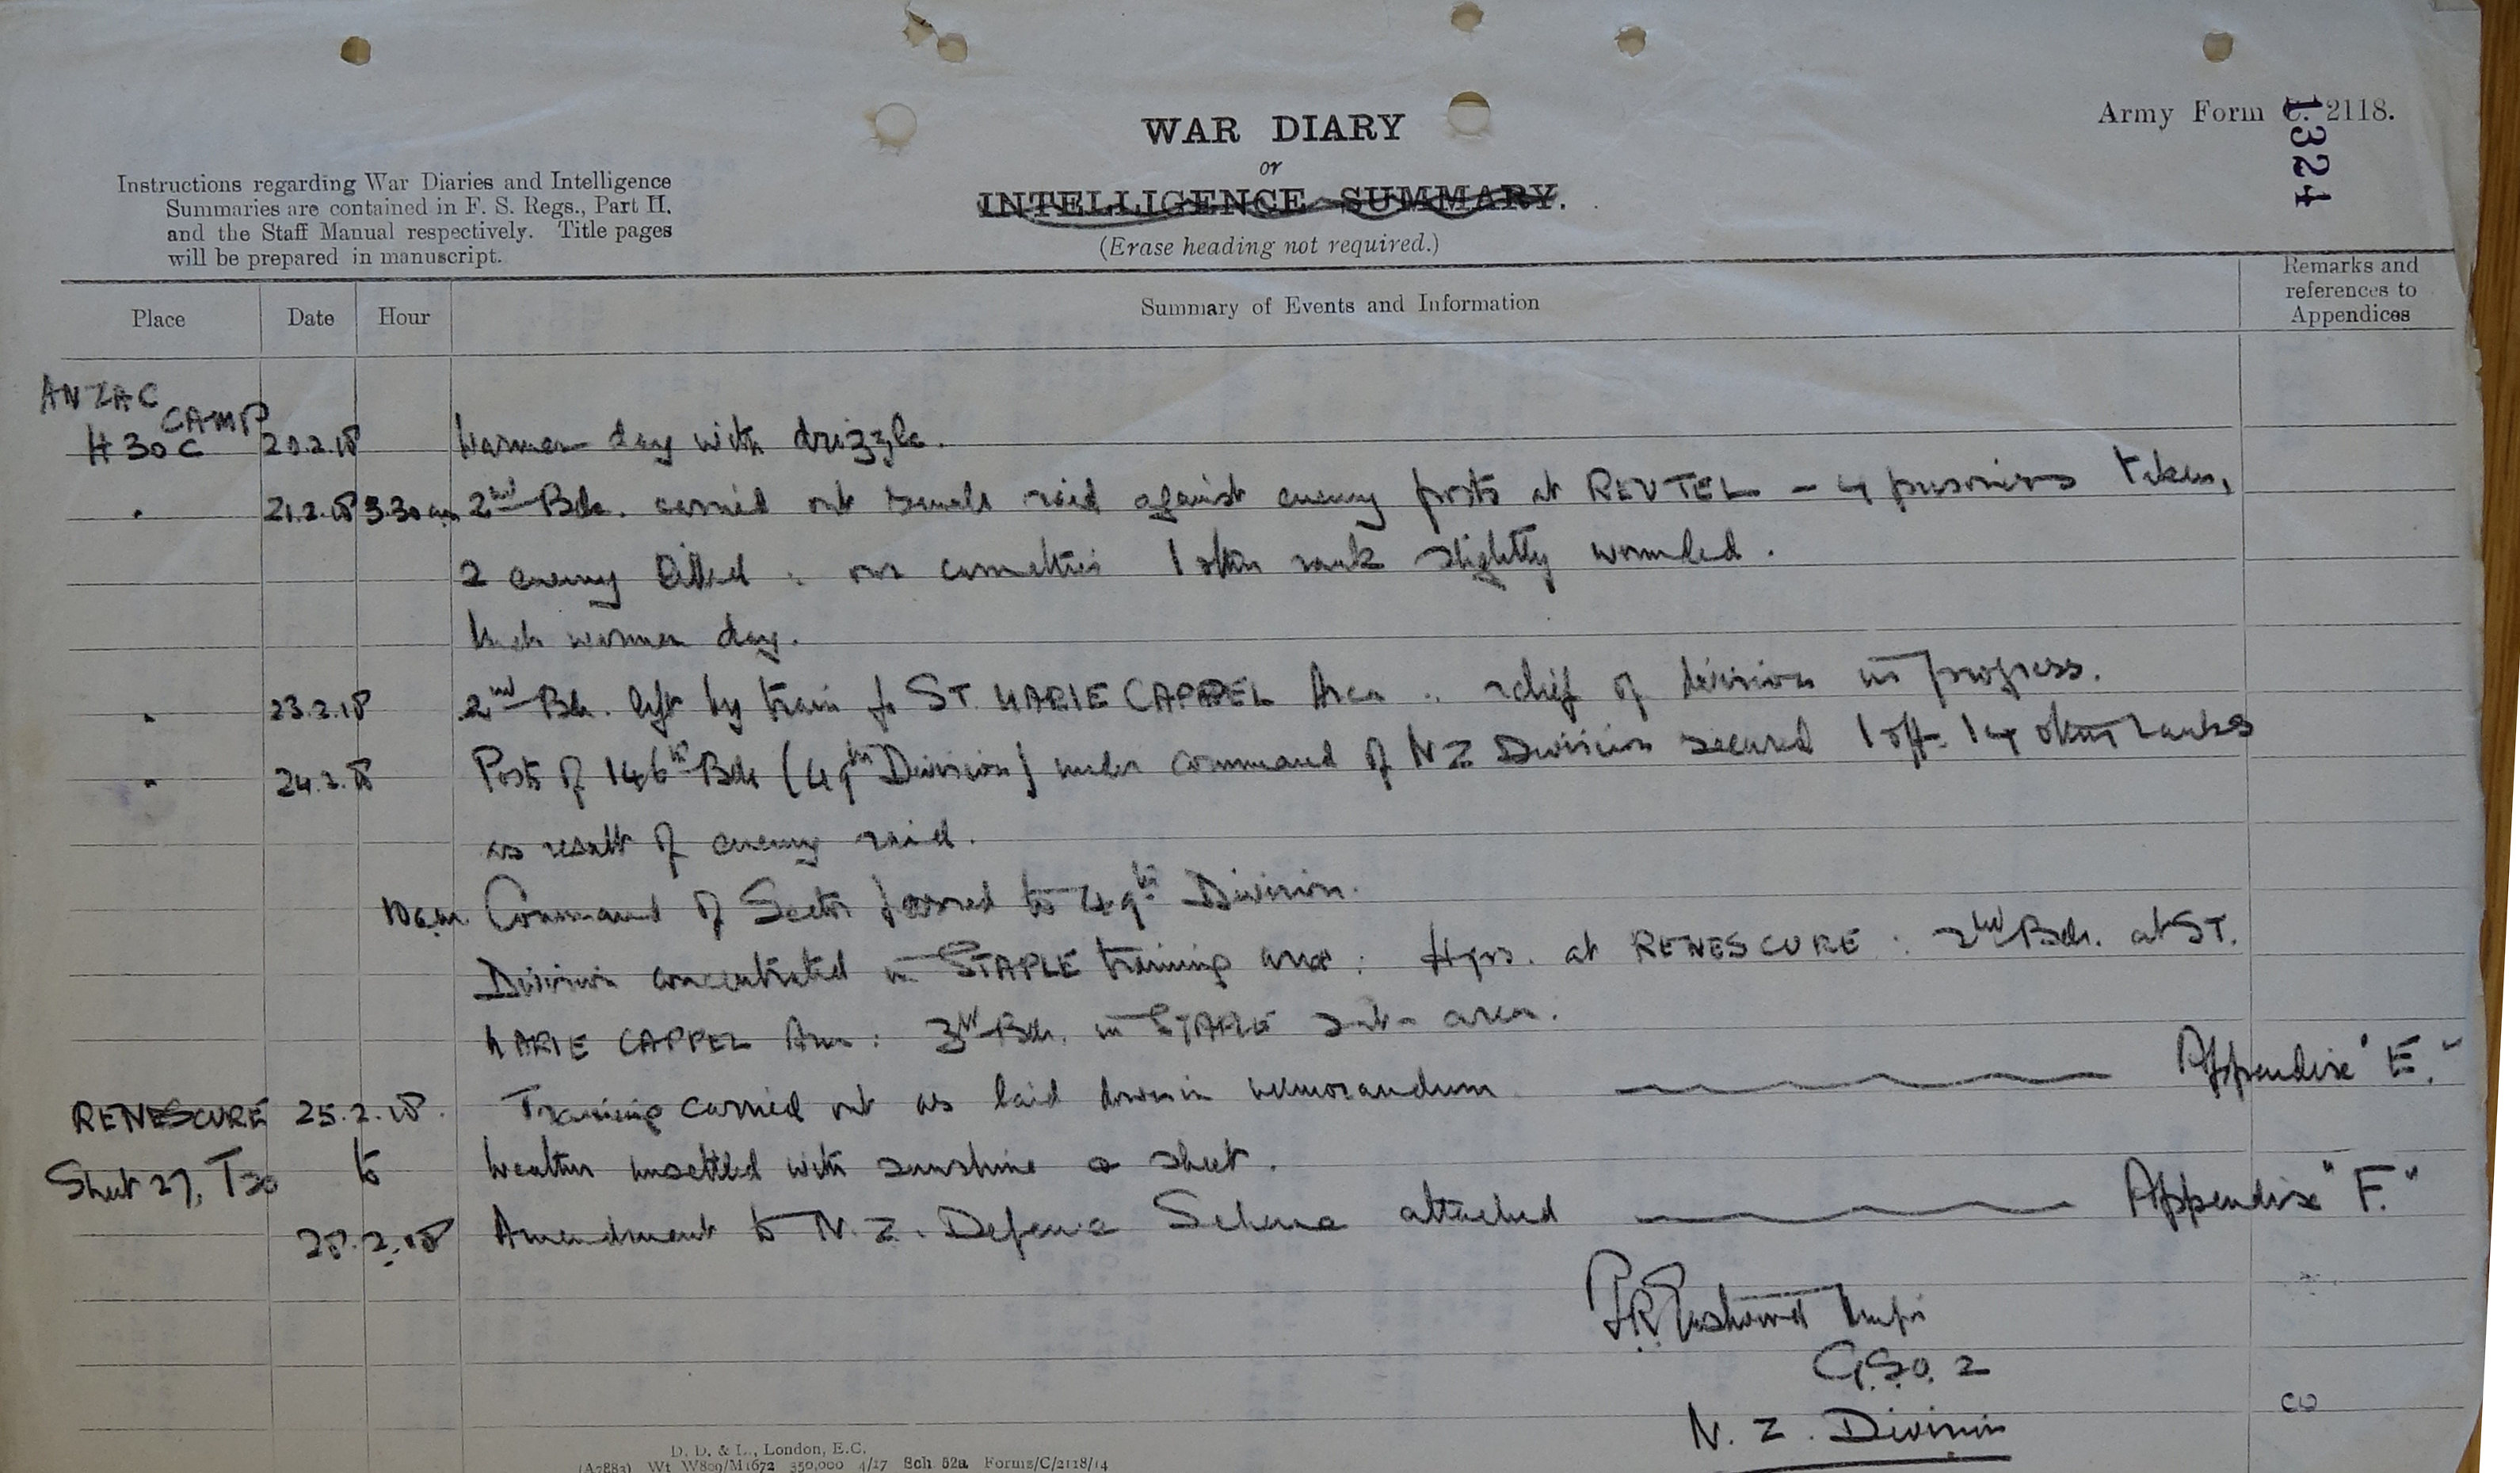 Army Form C. 2118.
1324
WAR DIARY
or
INTELLIGENCE SUMMARY.
(Erase heading not required.)
Instructions regarding War Diaries and Intelligence
Summaries are contained in F. S. Regs., Part II.
and the Staff Manual respectively. Title pages
will be prepared in manuscript.
Place Date Hour Summary of Events and Information Remarks and references to Appendices
ANZAC CAMP
H 30 C 20.2.18 Warmer day with drizzle.
" 21.2.18 3.30 am 2nd Bde. carried out small raid against enemy posts at REUTEL - 4 prisoners taken,
2 enemy killed : our casualties 1 other rank slightly wounded.
Much warmer day.
" 23.2.18 2nd Bde. left by train for ST. MARIE CAPPEL Area : relief of division in progress.
" 24.2.18 Posts of 146th Bde (49th Division) under command of N Z Division secured 1 off. 14 other ranks
as result of enemy raid.
10 a.m. Command of Sector passed to 49th Division.
Division concentrated in STAPLE training area : Hqrs. at RENESCURE : 2nd Bde. at ST.
MARIE CAPPEL Area : 3rd Bde. in STAPLE sub-area.
RENESCURE 25.2.18. Training carried out as laid down in memorandum Appendix "E."
Sheet 27, T30 to Weather unsettled with sunshine & sleet.
28.2.18 Amendment to N. Z. Defence Scheme attached Appendix "F."
Major
G.S.O. 2
N. Z. Division
D. D. & L., London, E.C.
(A7883) Wt W809/M1672 350,000 4/17 Sch 52a Forms/C/2118/14